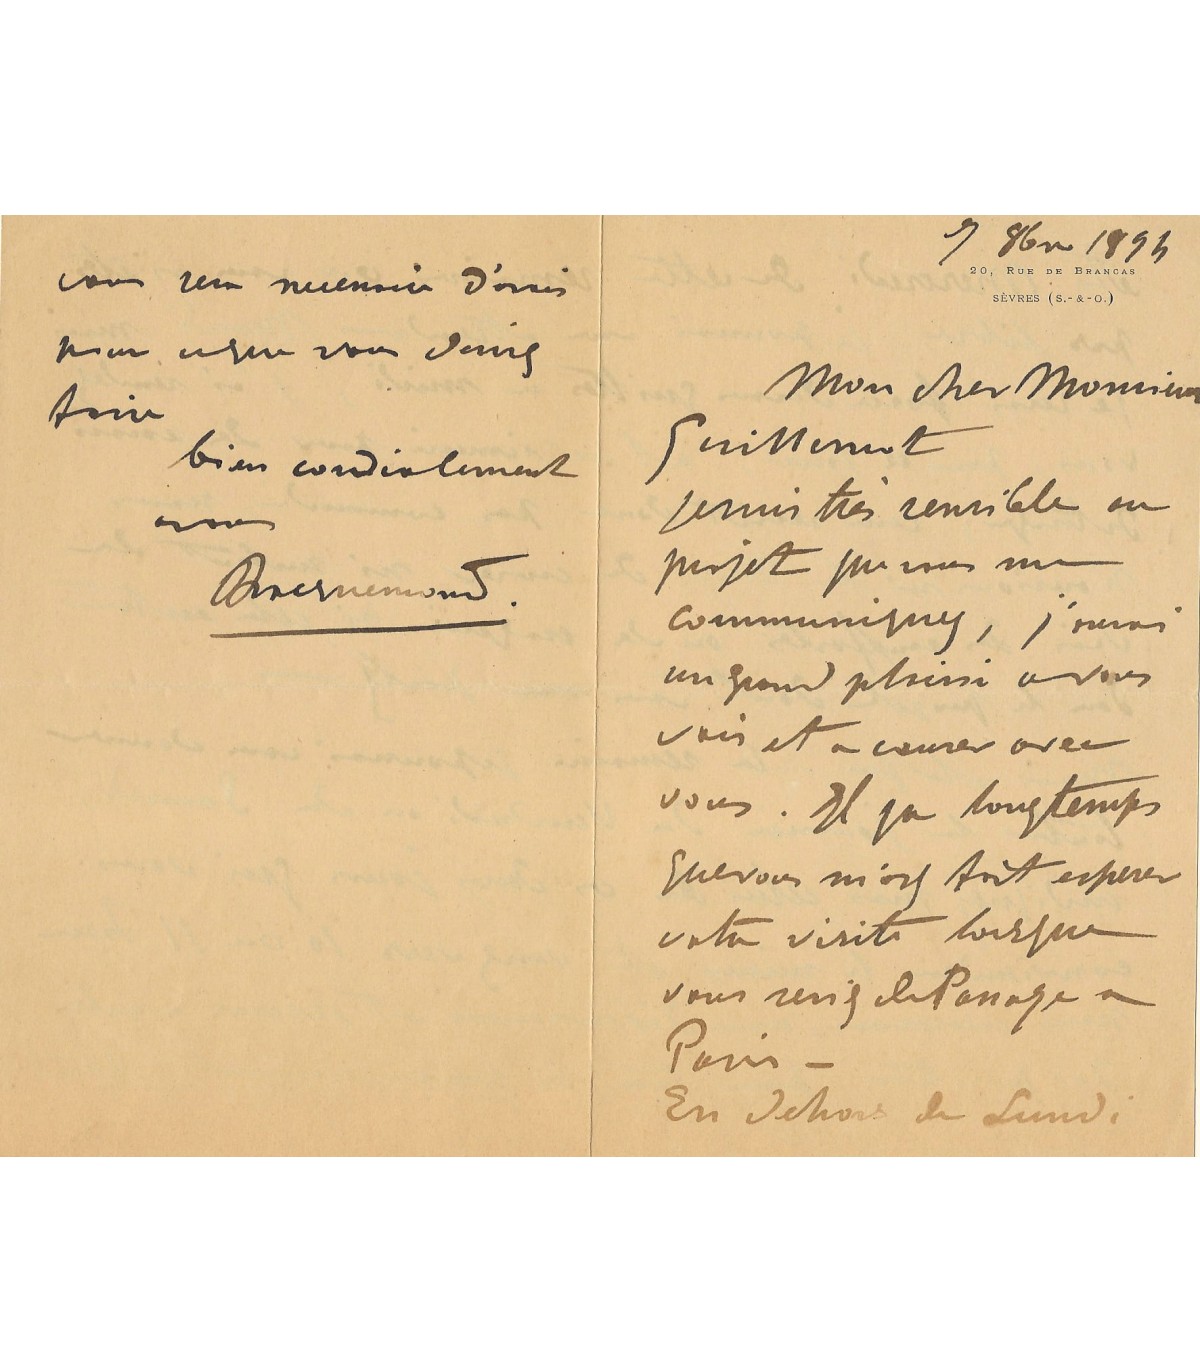 7 8bre 1894
20, RUE DE BRANCAS
SÈVRES (S.-&-O.)
Mon cher Monsieur
Guillemot
je suis très sensible au
projet que vous me
communiquez, j'aurai
un grand plaisir a vous
voir et a causer avec
vous. Il ya longtemps
que vous m'avez fait esperer
votre visite lorsque
vous seriez de Passage a
Paris —
En dehors de Lundi
vous sera necessaire d'avoir
pour ce que vous desirez
faire
bien cordialement
a vous
Bracquemond.